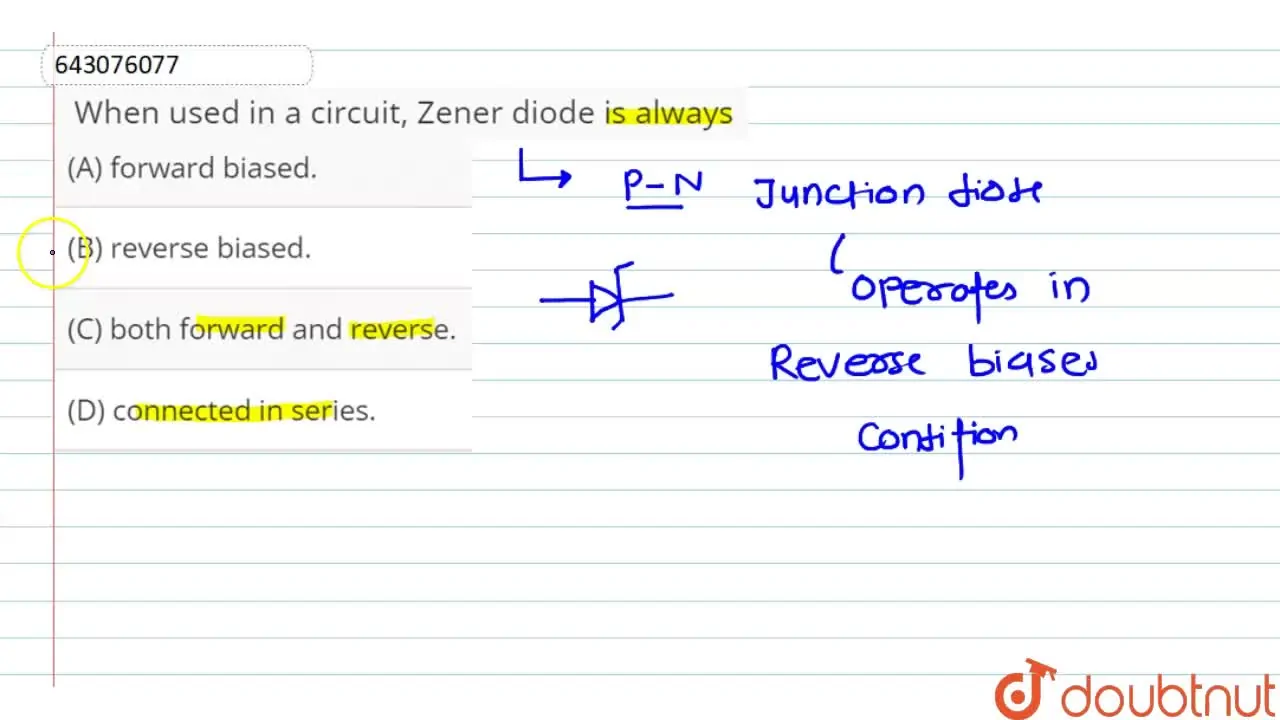 643076077
When used in a circuit, Zener diode is always
(A) forward biased.
(B) reverse biased.
(C) both forward and reverse.
(D) connected in series.
P-N Junction diode
operates in
Reverse biased
Condition
doubtnut